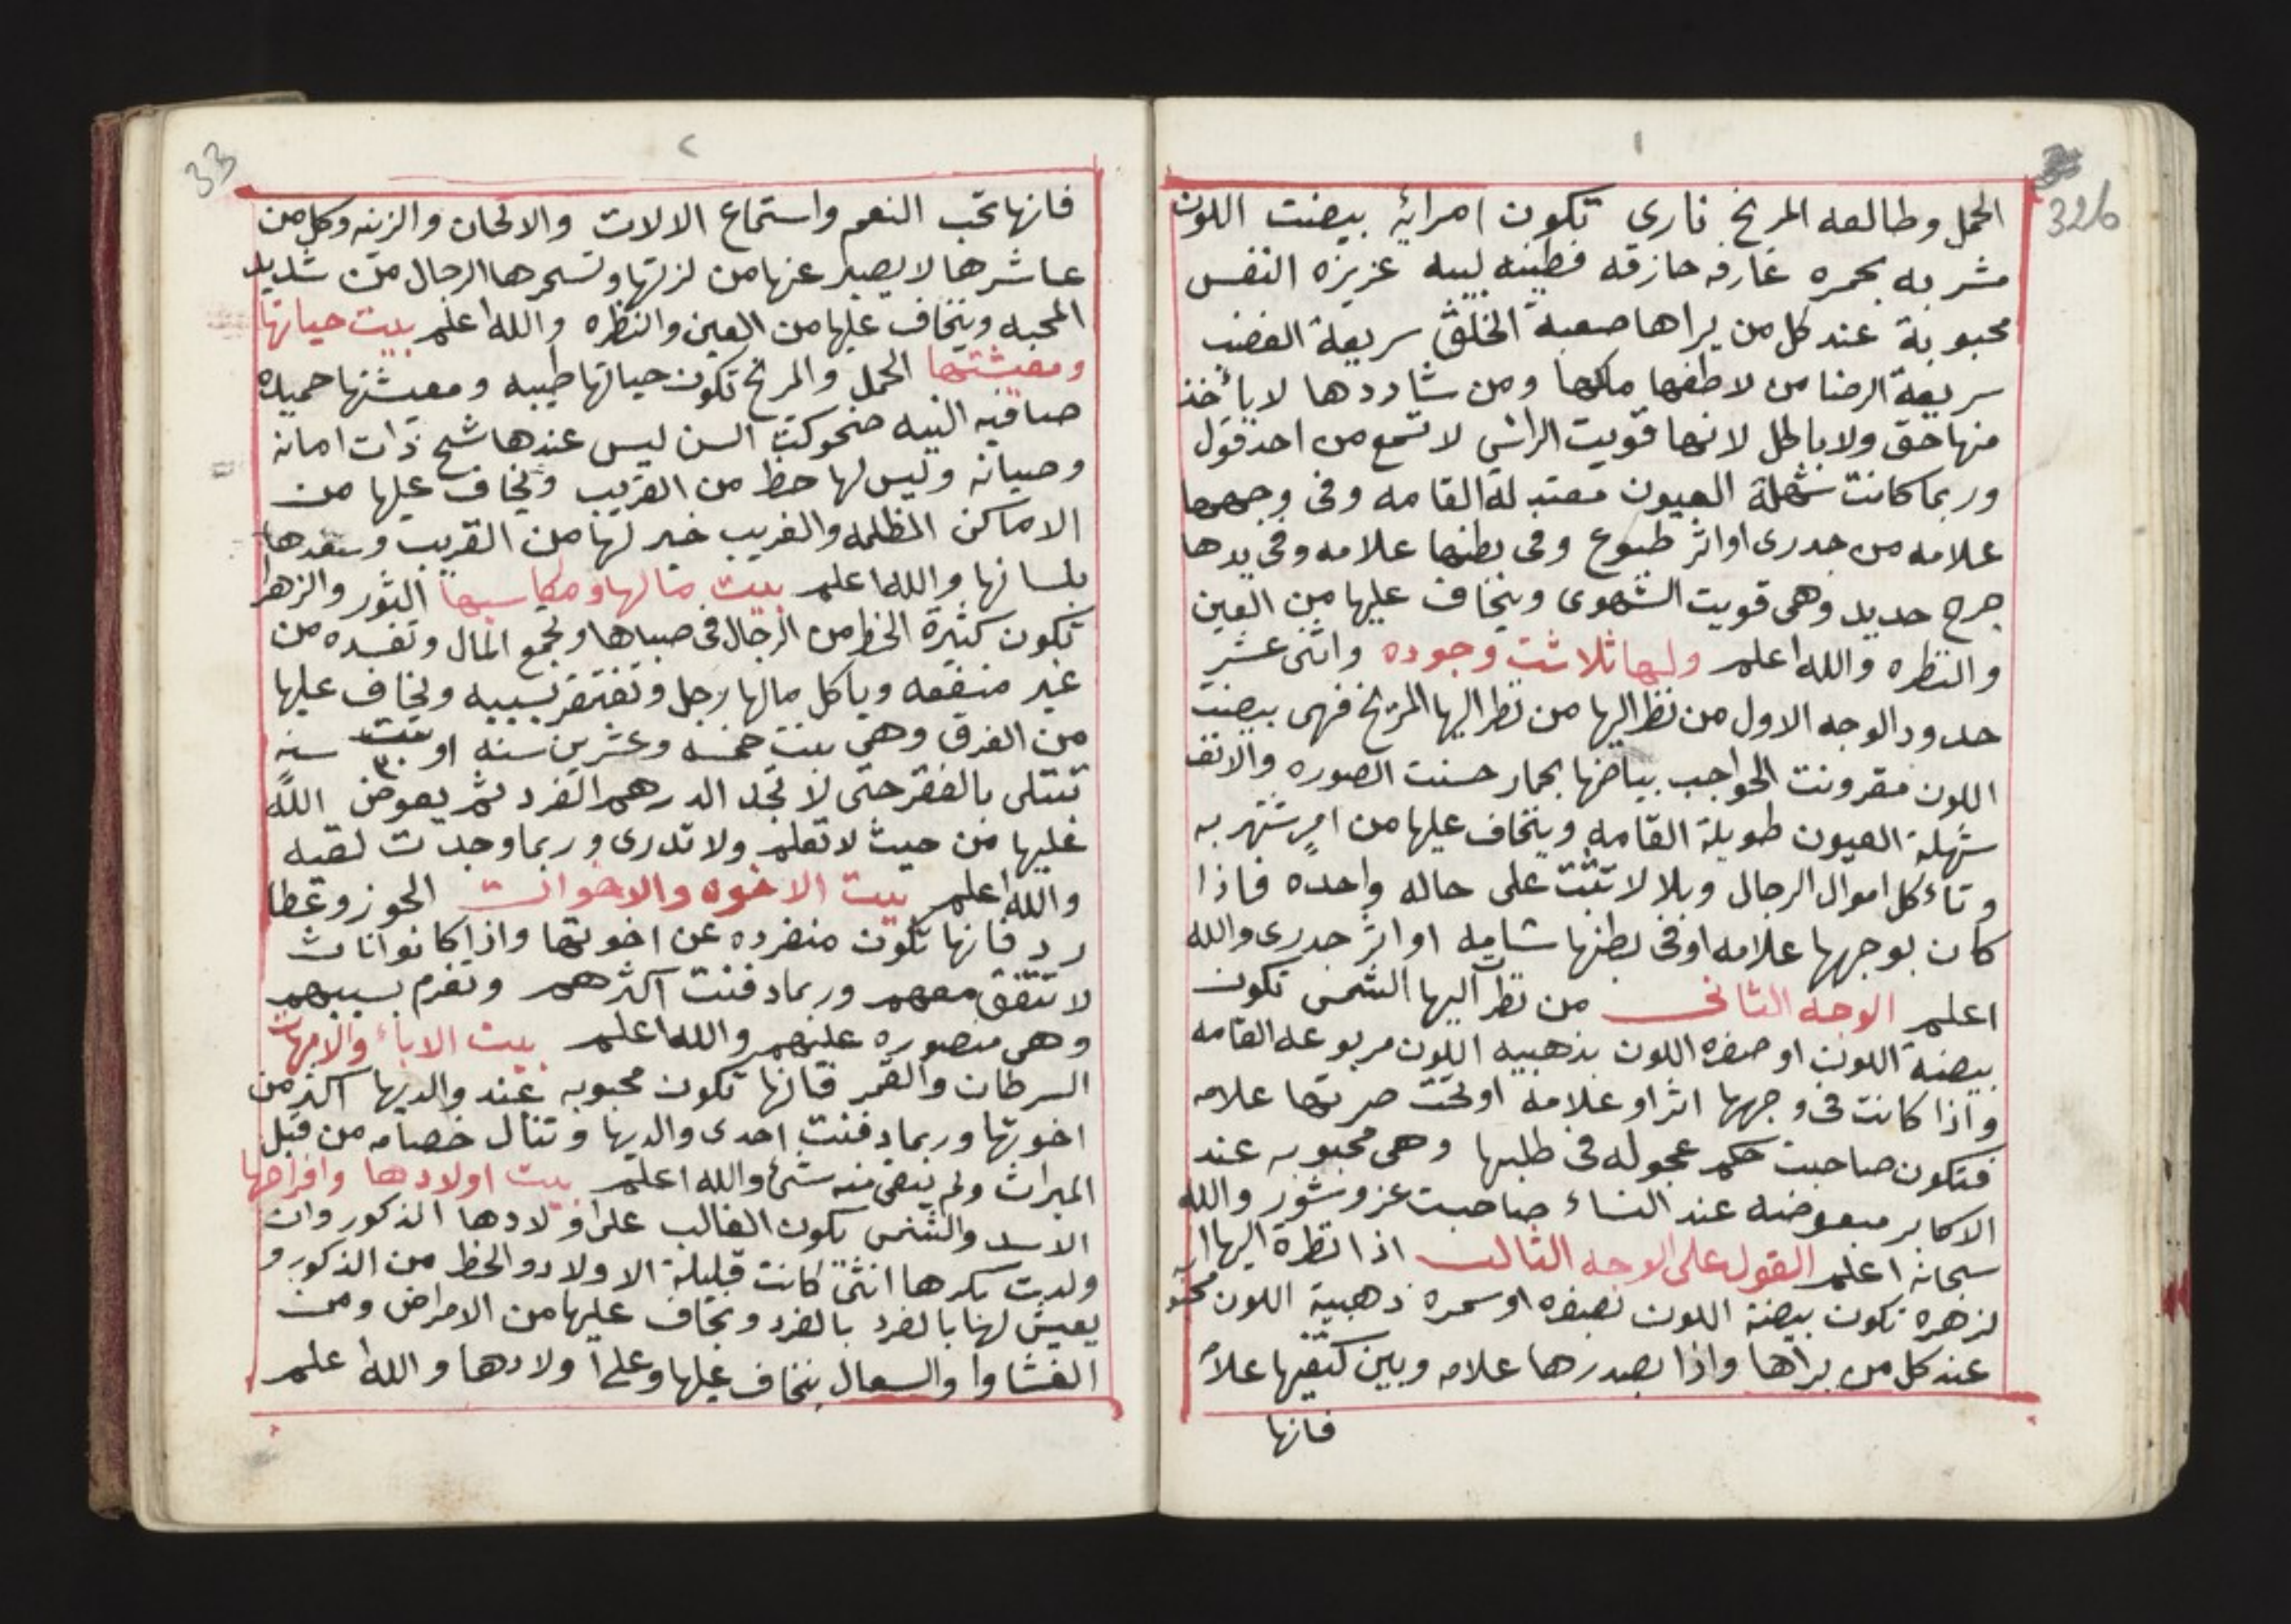 ١
32b
الحمل وطالعه المريخ ناري تكون امرايه بيضت اللون
مشربه بحمره عارفه حازقه فطينه لبيبه عزيزه النفس
محبوبة عند كل من يراها صعبة الخلق سريعة الغضب
سريعة الرضا من لاطفها ملكها ومن شاددها لا يأخذ
منها حق ولا باطل لانها قويت الراس لا تسمع من احد قول
وربما كانت شهلة العيون معتدلة القامه وفى وجهها
علامه من جدرى او اثر طبوع وفى بطنها علامه وفى يدها
جرح حديد وهى قويت الشهوى وينخاف عليها من العين
والنظره والله اعلم ولها ثلاثت وجوده واثنى عشر
حدود الوجه الاول من نظر اليها من نظر اليها المريخ فهى بيضت
اللون مقرونت الحواجب بياضها بحمار حسنت الصوره والانف
شهلة العيون طويلة القامه وينخاف عليها من امر تشتهر به
وتاءكل اموال الرجال وبلا لا تثبت على حاله واحده فاذا
كان بوجهها علامه او فى بطنها شامه او اثر جدرى والله
اعلم الوجه الثانى من نظر اليها الشمس تكون
بيضة اللون او صفره اللون بذهبيه اللون مربوعه القامه
واذا كانت فى وجهها اثر او علامه او تحت صرتها علامه
فتكون صاحبت حكم عجوله فى طلبها وهى محبوبه عند
الاكابر مبعوضه عند النساء صاحبت عز وشور والله
سبحانه اعلم القول على الوجه الثالث اذا نظرة اليها ا
لزهره تكون بيضة اللون بصفره او سمره ذهبية اللون محبو
عند كل من يراها واذا بصدرها علامه وبين كتفيها علامه
فانها
٢
33
فانها تحب النعم واستماع الالات والالحان والزينه وكل من
عاشرها لا يصبر عنها من لزتها وتسحرها الرجال من شديد
المحبه وينخاف عليها من العين والنظره والله اعلم بيت حياتها
ومعيشتها الحمل والمريخ تكون حياتها طيبه ومعيشتها حميده
صافيه النيه ضحوكت السن ليس عندها شح ذات امانه
وصيانه وليس لها حظ من القريب ويخاف عليها من
الاماكن المظلمه والغريب خير لها من القريب وسعدها
بلسانها والله اعلم بيت مالها ومكاسبها الثور والزهرا
تكون كثيرة الحظ من الرجال فى صباها وتجمع المال وتفسده من
غير منفعه وياكل مالها رجل وتفتقر بسببه ويخاف عليها
من الغرق وهى بنت خمسه وعشرين سنه او بنت ٣٠ سنه
تبتلى بالفقر حتى لا تجد الدرهم الفرد ثم يعوض الله
عليها من حيث لا تعلم ولا تدرى وربما وجدت لقيه
والله اعلم بيت الاخوه والاخوات الجوز وعطا
رد فانها تكون منفرده عن اخوتها واذا كانوا اناث
لا تتفق معهم وربما دفنت اكثرهم وتغرم بسببهم
وهى منصوره عليهم والله اعلم بيت الاباء والامهات
السرطان والقمر فانها تكون محبوبه عند والديها اكثر من
اخوتها وربما دفنت احدى والديها وتنال خصامه من قبل
الميراث ولم يبقى منه شئ والله اعلم بيت اولادها وافراحها
الاسد والشمس يكون الغالب على اولادها الذكور وان
ولدت بكرها انثى كانت قليلة الاولاد والحظ من الذكور و
يعيش لها بالفرد بالفرد ويخاف عليها من الامراض ومن
الغشاوا والسعال ينخاف عليها وعلى اولادها والله اعلم